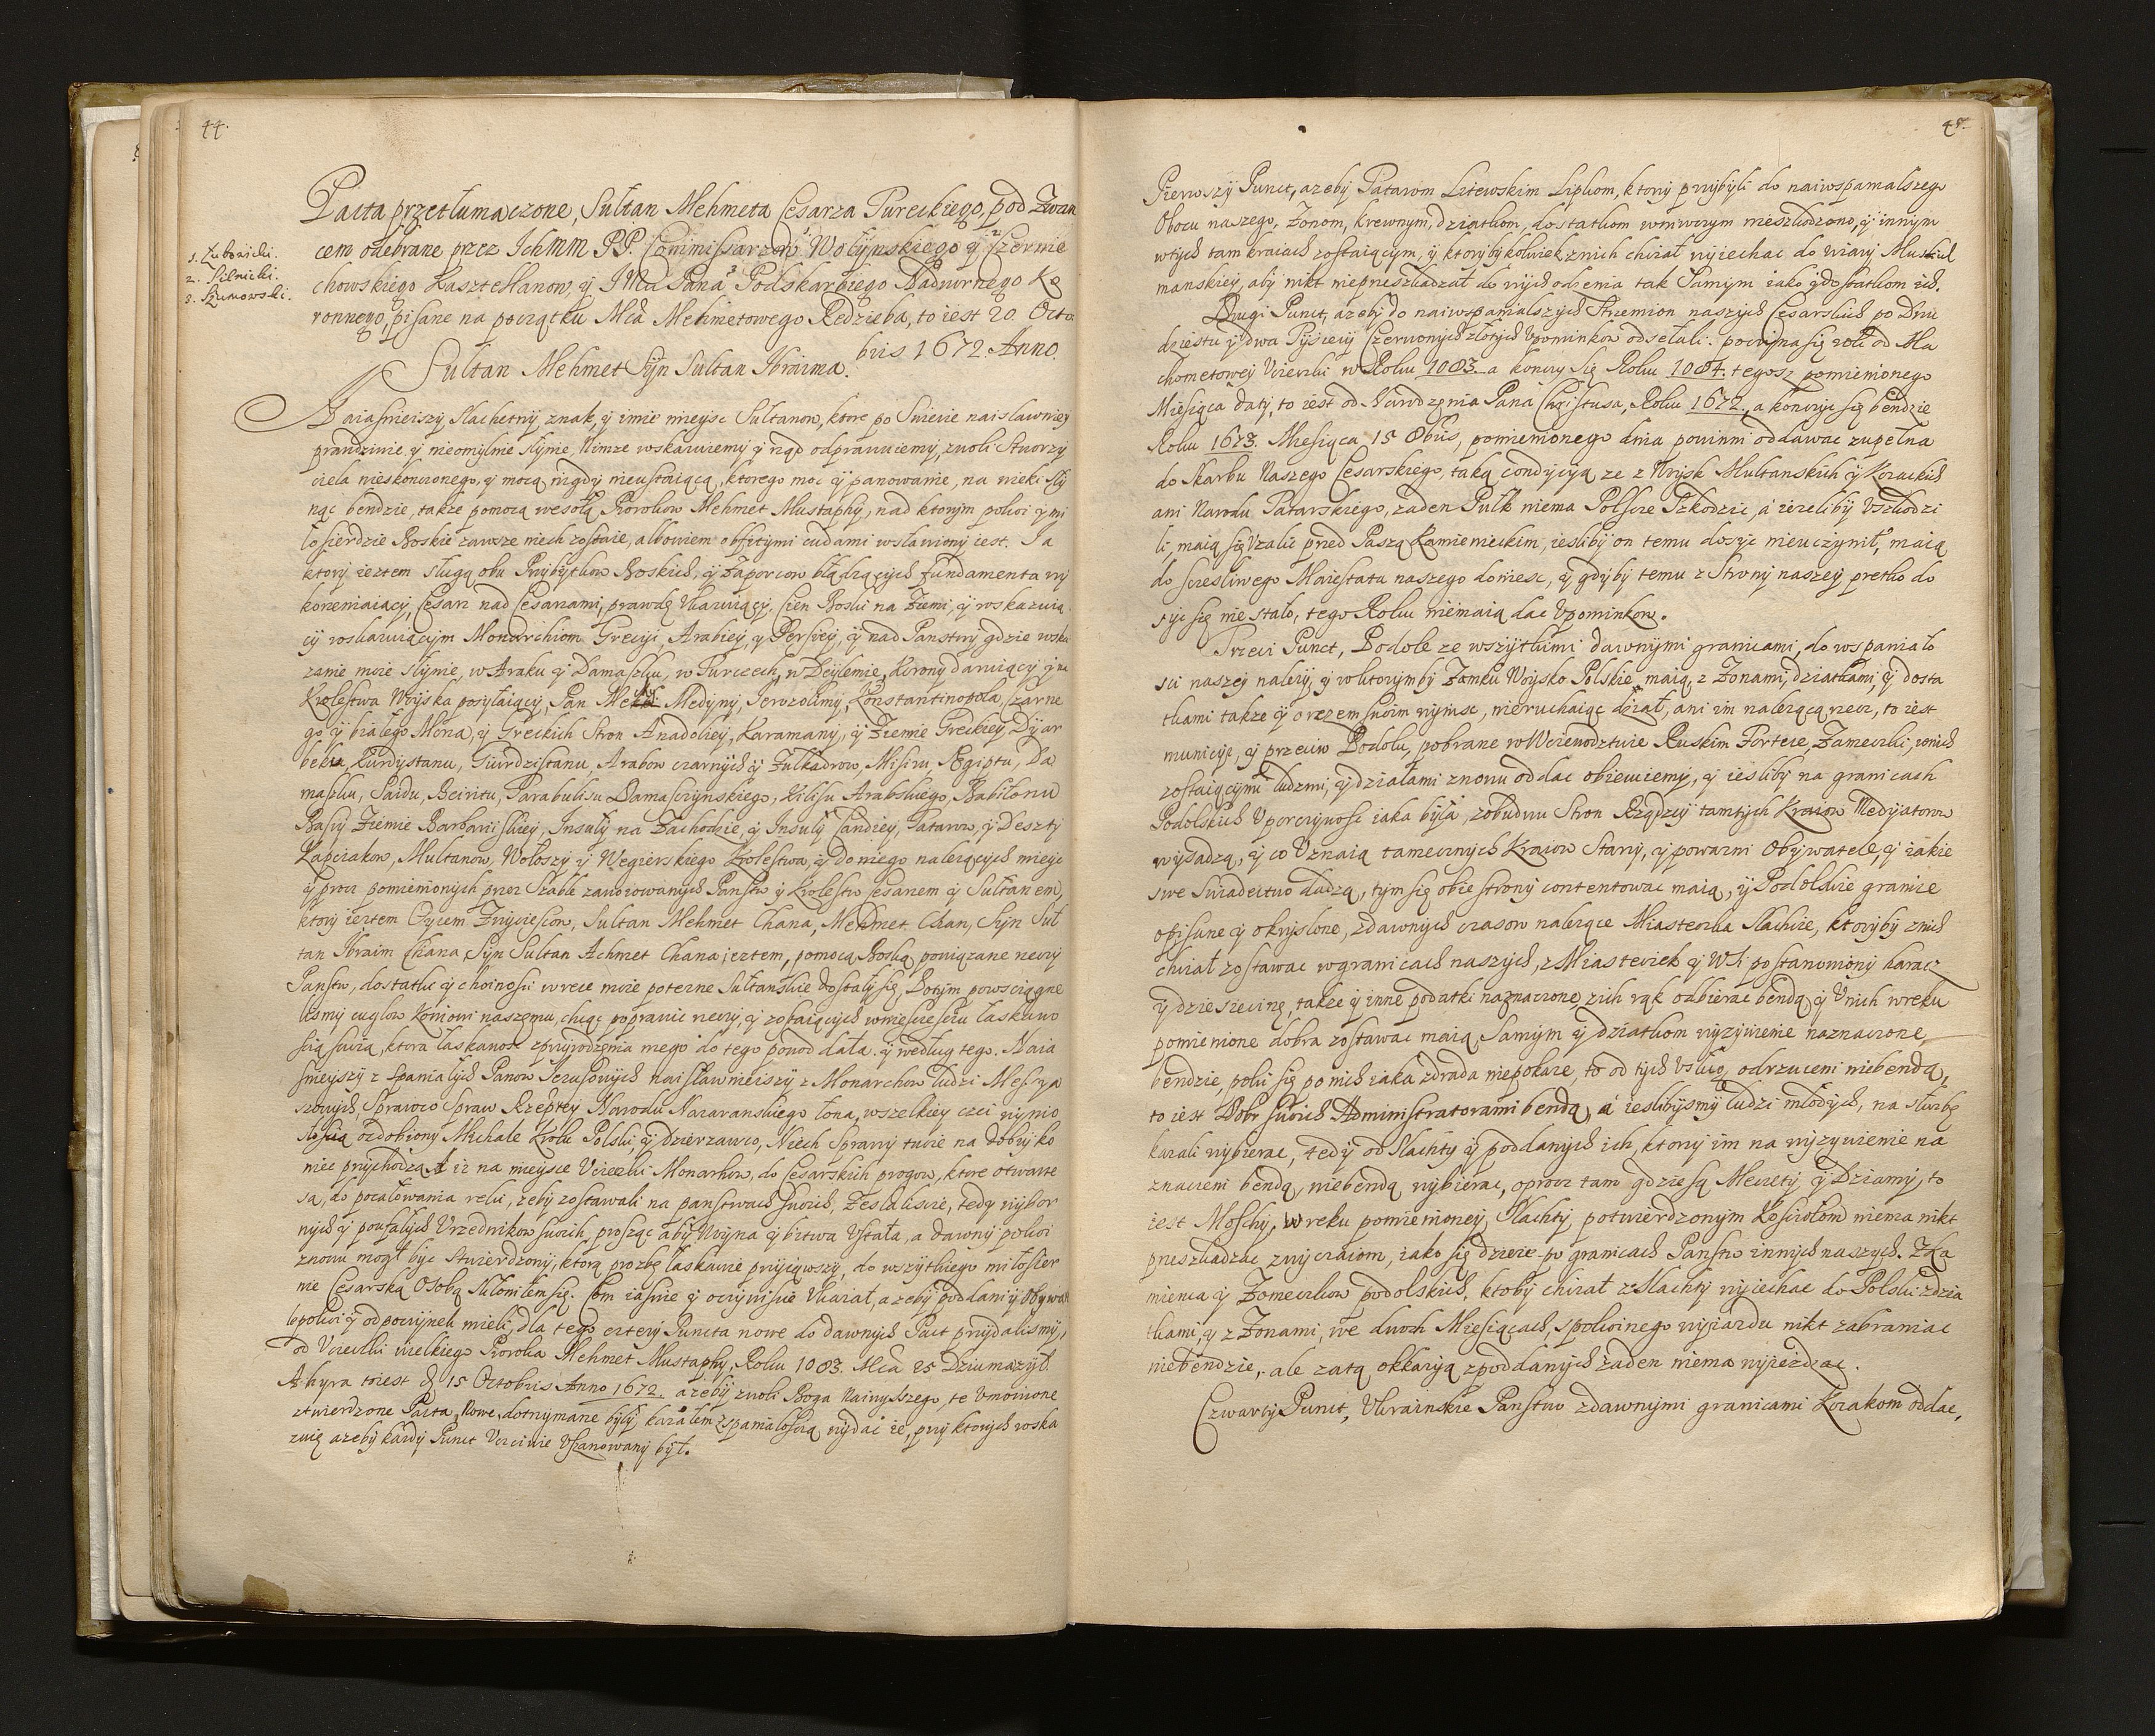 44.
Pacta przetłumaczone, Sułtan Mehmeta Cesarza Tureckiego, pod Zwan
cem odebrane przez IchMM PP. Commissarzow Wołynskiego y Czernie
chowskiego Kasztellanow, y IMci Pana Podskarbiego Nadwornego Ko
ronnego, pisane na początku Mca Mehmetowego Redzieba, to iest 20. Octo
bris 1672. Anno.
1. Lubowicki.
2. Silnicki.
3. Szumowski.
Sułtan Mehmet Syn Sułtan Ibraima.
Naiasnieiszy Slachetny znak, y imie mieysc Sułtanow, ktore po Swiecie naisławniey
prawdziwie y nieomylnie słynie, Nimze wskazuiemy y rząd odprawuiemy, z woli Stworzy
ciela nieskonczonego, y mocą nigdy nieustaiącą, ktorego moc y panowanie, na wieki sły
nąc bendzie, także pomocą wesołą Prorokow Mehmet Mustaphy, nad ktorym pokoi y mi
łosierdzie Boskie zawsze niech zostaie, albowiem obfitymi cudami wsławiony iest. Ia
ktory iestem sługą obu Przybytkow Boskich, y Zaporcow błądzących fundamenta wy
korzeniaiący, Cesarz nad Cesarzami, prawdę Ukazuiący, Cien Boski na Ziemi, y roskazuią
cy roskazuiącym Monarchiom Greciyi, Arabiey, y Persiey, y nad Panstwy, gdzie roska
zanie moie słynie, w Iraku y Damaszku, w Turczech, w Deylemie, Korony daruiący y na
Krolestwa Woyska posyłaiący, Pan Mekki Medyny, Ieruzolimy, Konstantinopola, Czarne
go y białego Morza, y Greckich Stron Anadoliey, Karamany, y Ziemie Greckiey, Dyar
bekra, Kurdystanu, Giurdzistanu, Arabow czarnych y Zulkadrow, Misiru, Ægiptu, Da
maszku, Saidu, Beirutu, Tarabulisu Damaszczynskiego, Kilisu Arabskiego, Babilonu
Basry Ziemie Barbariiskiey, Insuły na Zachodzie, y Insuły Candiey, Tatarow, y Deszty
Kapczakow, Multanow, Wołoszy y Węgierskiego Krolestwa, y do niego nalezących mieysc
y procz pomienionych przez Szable zawoiowanych Panstw y Krolestw Cesarzem y Sułtanem,
ktory iestem Oycem Zwyciescow, Sułtan Mehmet Chana, Mehmet Chan, Syn Suł
tan Ibraim Chana, Syn Sułtan Achmet Chana iestem, pomocą Boską powiązane rzeczy
Panstw, dostatki y choinosci w ręce moie poterzne Sułtanskie dostały się. Potym powsciągne
lismy cuglow Koniowi naszemu, chcąc poprawic rzeczy, y zostaiących w niesczesciu łaskawo
scią swoią, ktora łaskawosc z przyrodzenia mego do tego powod dała. y według tego. Naia
snieyszy z spaniałych Panow Iezusowych naisławnieiszy z Monarchow ludzi Messya
szowych, Sprawco Spraw Rzeptey Narodu Nazaranskiego łona, wszelkiey czci wynio
słoscią ozdobiony Michale Krolu Polski y dzierzawco, Niech Sprawy twoie na dobry ko
niec przychodzą. A iz na mieysce Ucieczki Monarchow, do Cesarskich progow, ktore otwarte
są, do pocałowania ręki, zeby zostawali na panstwach swoich, Zesłaliscie, tedy wybor
nych y poufałych Urzednikow swoich, prosząc aby Woyna y bitwa Ustała, a dawny pokoi
znowu mogł byc stwierdzony, ktorą prozbę łaskawie przyiąwszy, do wszytkiego miłosier
nie Cesarską Osobą skłoniłem się. Com iasnie y oczywisie Ukazał, azeby poddani y Obywat
le pokoi y odpoczynek mieli, dla tego cztery Puncta nowe do dawnych Pact przydalismy,
od Ucieczki wielkiego Proroka Mehmet Mustaphy, Roku 1083. Mca 25 Dziumazył
Ahyra to iest d. 15 Octobris Anno 1672. azeby z woli Boga Naiwyszszego, te Umowione
ztwierdzone Pacta, Nowe, dotrzymane były kazałem z spaniałoscią wydac ie, przy ktorych roska
zuię azeby kazdy Punct Uczciwie Uszanowany był.
45.
Pierwszy Punct, azeby Tatarom Litewskim Lipkom, ktorzy przybyli do naiwspanialszego
Obozu naszego, Zonom, krewnym, dziatkom, dostatkom w niwczym nieszkodzono, y innym
w tych tam kraiach zostaiącym, y ktorybykolwiek z nich chciał wyiechac do wiary Musul
manskiey, aby nikt nieprzeszkadzał do wychodzenia tak Samym iako y dostatkom ich.
Drugi Punct, azeby do naiwspanialszych Strzemion naszych Cesarskich po Dwu
dziestu y dwa Tysięcy Czerwonych złotych Upominkow odsełali. poczyna się rok od Ma
chometowey Ucieczki w Roku 1083. a konczy się Roku 1084. tegosz pomienionego
Miesiąca daty, to iest od Narodzenia Pana Chrystusa, Roku 1672. a konczyc się bendzie
Roku 1673. Miesiąca 15 8bris, pomienionego dnia powinni oddawac zupełna
do Skarbu Naszego Cesarskiego, taką condycyą ze z Woysk Multanskich y Kozackich
ani Narodu Tatarskiego, zaden Pułk niema Polscze Szkodzic, a iezeliby Uszkodzi
li, maią się Uzalic przed Paszą Kamienieckim, iesliby on temu dosyc nieuczynił, maią
do sczesliwego Maiestatu naszego doniesc, y gdyby temu z Strony naszey prętko do
syc się nie stało, tego Roku niemaią dac Upominkow.
Trzeci Punct, Podole ze wszytkimi dawnymi granicami, do wspaniało
sci naszey nalezy, y w ktorymby Zamku Woysko Polskie, maią z Zonami, dziatkami, y dosta
tkami także y oręzem swoim wynisc, nieruchaiąc dział, ani im nalezącą rzecz, to iest
municye, y przeciw Podolu, pobrane w Woiewodztwie Ruskim Fortece, Zameczki, w nich
zostaiącymi ludzmi, y działami znowu oddac obiecuiemy, y iesliby na granicach
Podolskich Uporczywosc iaka była, z obudwu Stron Rządzcy tamtych Kraiow Medyatorow
wysadzą, y co Uznaią tamecznych Kraiow Starzy, y powazni Obywatele, y iakie
swe Swiadectwo dadzą, tym się obie strony contentowac maią, y Podolskie granice
opisane y okryslone, z dawnych czasow nalezące Miasteczka Slachcie, ktoryby z nich
chciał zostawac w granicach naszych, z Miasteczek y Wsi postanowiony haracz
y dziesiecinę, także y inne podatki naznaczone, z ich rąk odbierac bendą, y U nich w ręku
pomienione dobra zostawac maią, Samym y dziatkom wyzywienie naznaczone,
bendzie, poki się po nich iaka zdrada niepokaze, to od tych Usług odrzuceni niebendą,
to iest Dobr swoich Administratorami bendą, á ieslibysmy ludzi młodych, na słuzbę
kazali wybierac, tedy od Slachty y poddanych ich, ktorzy im na wyzywienie na
znaczeni bendą, niebendą wybierac, oprocz tam gdzie są Meczety, y Dziamy, to
iest Moschy. W reku pomienioney, Slachty potwierdzonym Kosciołom niema nikt
przeszkadzac zwyczaiom, iako się dzieie po granicach Panstw innych naszych. Z Ka
mienca y Zameczkow podolskich, ktoby chciał z Slachty wyiechac do Polski z dzia
tkami, y z Zonami, we dwoch Miesiącach, spokoinego wyiazdu nikt zabraniac
niebendzie, ale za tą okkazyą z poddanych żaden niema wyiezdzac.
Czwarty Punct, Ukrainskie Panstwo z dawnymi granicami Kozakom oddac,